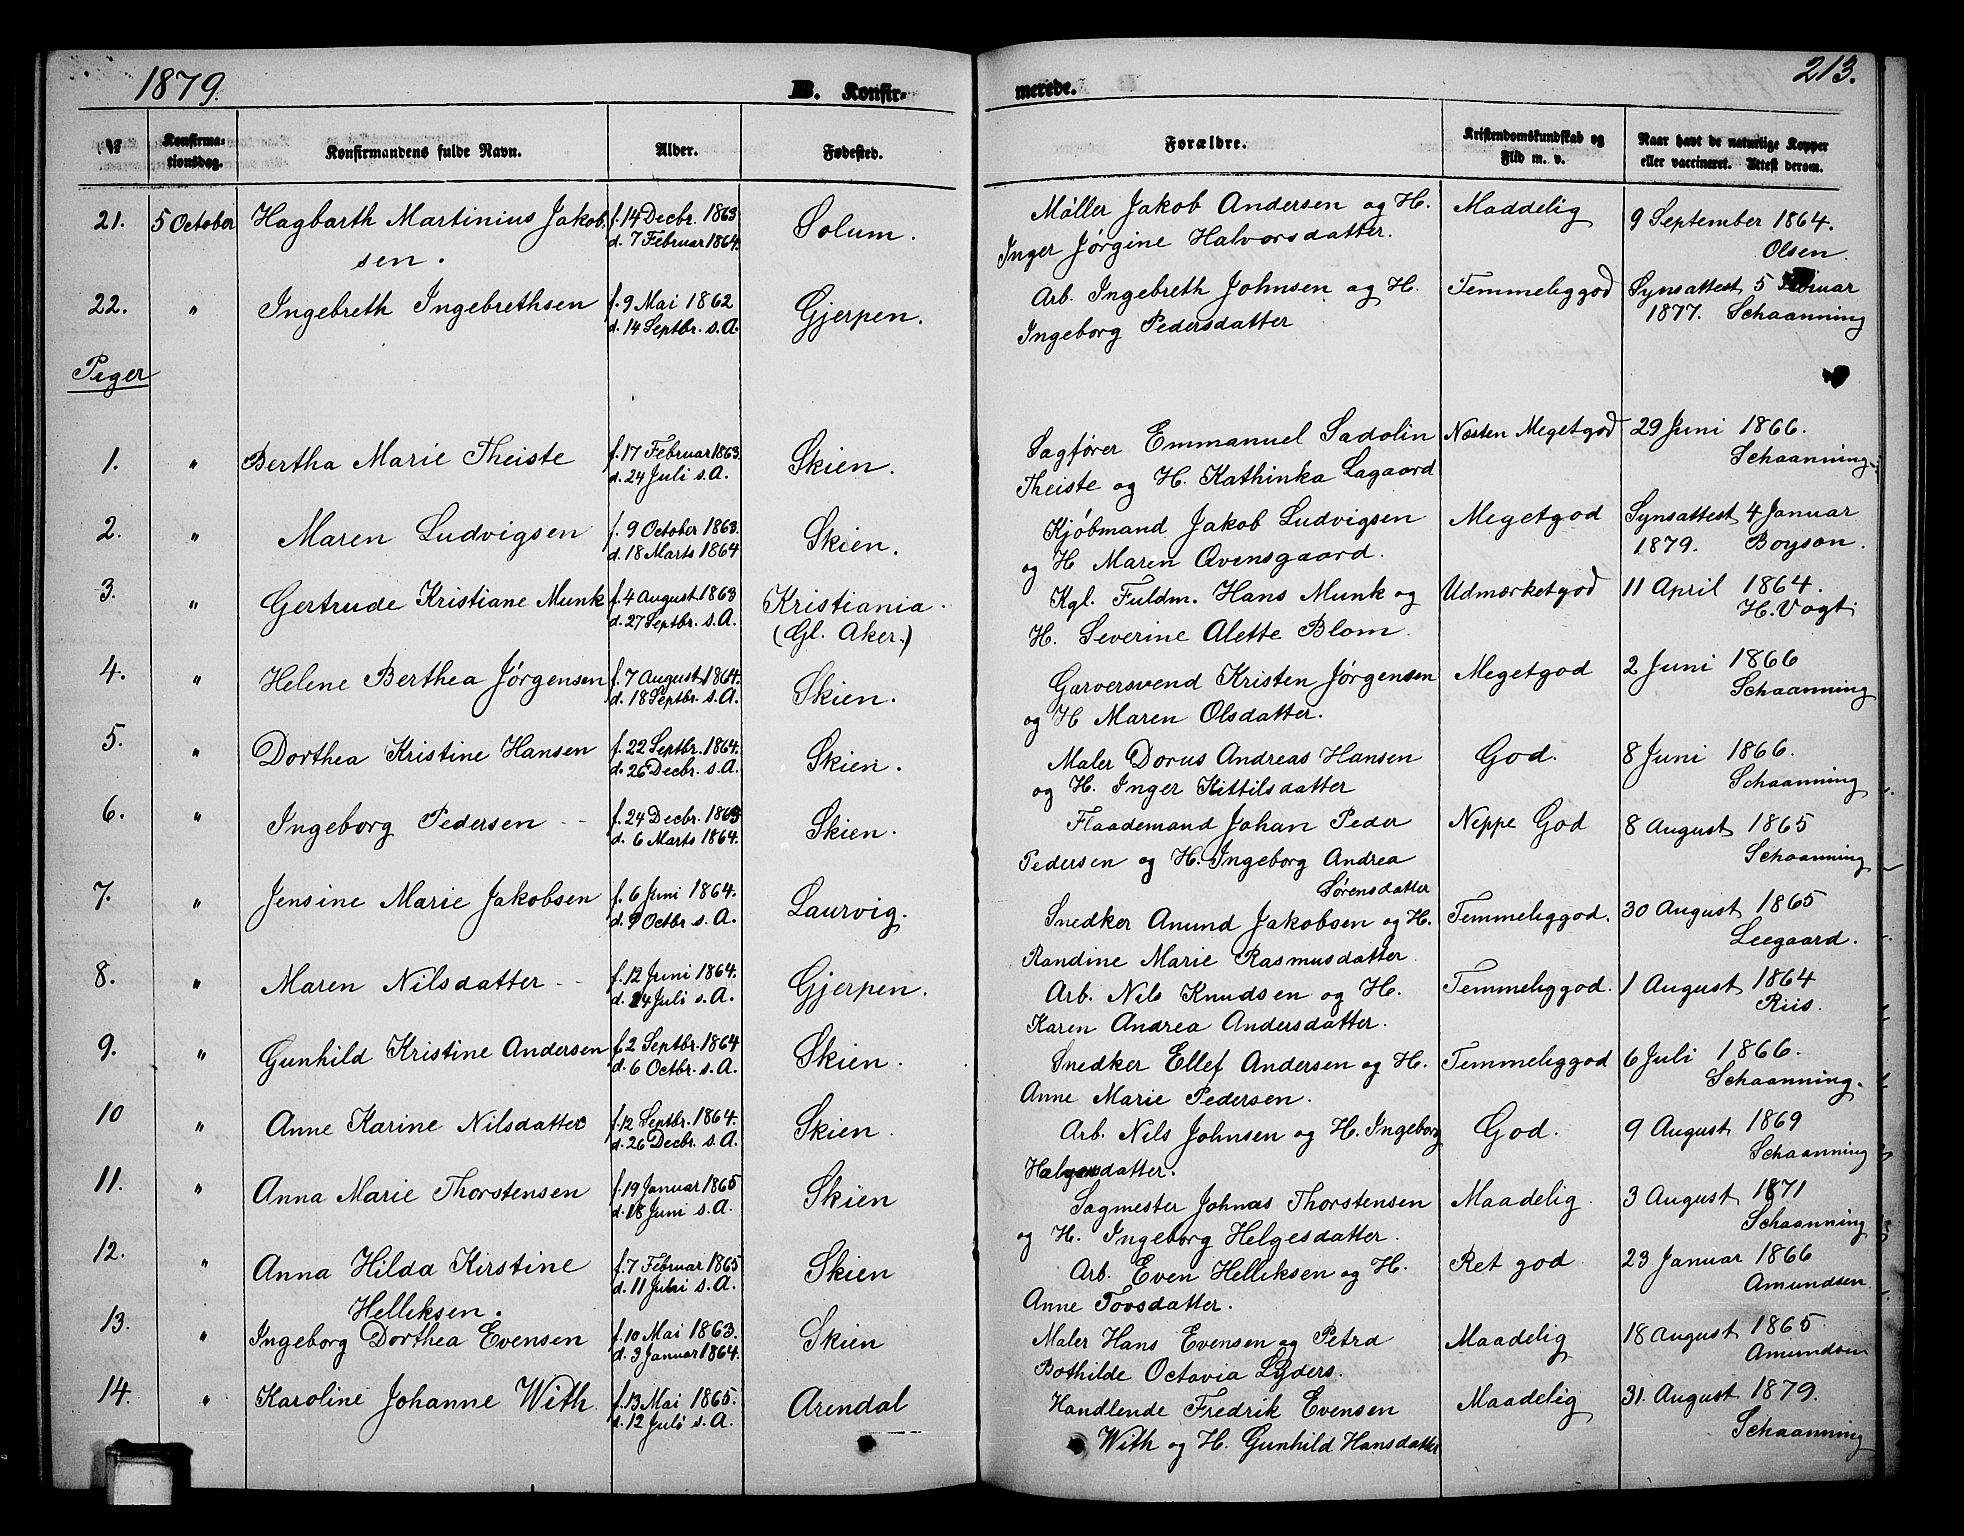 1879.
B. Konfir-
merede.
213.
№
Konfirma-
tionsdag.
Konfirmandens fulde Navn.
Alder.
Fødested.
Forældre.
Kristendomskundskab og
Flid m. v.
Naar havt de naturlige Kopper
eller vaccineret. Attest derom.
21. 5 October Hagbarth Martinius Jakob f. 14 Decbr. 1863 Solum. Møller Jakob Andersen og H. Maadelig 9 September 1864.
sen. d. 7 Februar 1864. Inger Jørgine Halvorsdatter. Olsen.
22. " Ingebreth Ingebrethsen f. 9 Mai 1862 Gjerpen. Arb. Ingebreth Johnsen og H. Temmeliggod Synsattest 5 Februar
d. 14 Septbr. s. A. Ingeborg Pedersdatter 1877. Schaanning
Piger
1. " Bertha Marie Theiste f. 17 Februar 1863. Skien. Sagfører Emmanuel Sadolin Næsten Megetgod 29 Juni 1866.
d. 24 Juli s. A. Theiste og H. Kathinka Lagaard Schaanning
2. " Maren Ludvigsen f. 9 October 1863. Skien. Kjøbmand Jakob Ludvigsen Megetgod Synsattest 4 Januar
d. 18 Marts 1864 og H Maren Ovensgaard. 1879. Boyson.
3. " Gertrude Kristiane Munk f. 4 August 1863 Kristiania. Kgl. Fuldm. Hans Munk og Udmærketgod 11 April 1864.
d. 27 Septbr. s. A. (Gl. Aker.) H. Severine Alette Blom. H. Vogt.
4. " Helene Berthea Jørgensen f. 7 August 1864. Skien. Garversvend Kristen Jørgensen Megetgod 2 Juni 1866
d. 18 Septbr. s. A. og H Maren Olsdatter. Schaanning
5. " Dorthea Kristine Hansen f. 22 Septbr. 1864. Skien. Maler Dorus Andreas Hansen God. 8 Juni 1866.
d. 26 Decbr. s. A. og H. Inger Kittilsdatter Schaanning
6. " Ingeborg Pedersen f. 24 Decbr. 1863 Skien. Flaademand Johan Peder Neppe God 8 August 1865
d. 6 Marts 1864. Pedersen og H. Ingeborg Andrea Schaanning
Sørensdatter
7. " Jensine Marie Jakobsen f. 6 Juni 1864. Laurvig. Snedker Amund Jakobsen og H. Temmeliggod. 30 August 1865
d. 9 Octbr s. A. Randine Marie Rasmusdatter Leegaard.
8. " Maren Nilsdatter f. 12 Juni 1864. Gjerpen. Arb. Nils Knudsen og H. Temmeliggod. 1 August 1864
d. 24 Juli s. A. Karen Andrea Andersdatter. Riis.
9. " Gunhild Kristine Andersen f. 2 Septbr. 1864 Skien. Snedker Ellef Andersen og H. Temmeliggod 6 Juli 1866.
d. 6 Octbr. s. A. Anne Marie Pedersen. Schaanning.
10 " Anne Karine Nilsdatter f. 12 Septbr. 1864. Skien. Arb. Nils Johnsen og H. Ingeborg God. 9 August 1869
d. 26 Decbr. s. A. Schaanning
11. " Anna Marie Thorstensen f. 19 Januar 1865 Skien Sagmester Johnas Thorstensen Maadelig. 3 August 1871
d. 18 Juni s. A. og H. Ingeborg Helgesdatter. Schaanning
12. " Anna Hilda Kirstine f. 7 Februar 1865 Skien Arb. Even Helliksen og H. Ret god 23 Januar 1866
Helliksen. d. 11 Juni s. A. Anne Tovsdatter. Amundsen
13. " Ingeborg Dorthea Evensen f. 10 Mai 1863. Skien Maler Hans Evensen og Petra Maadelig 18 August 1865
d. 3 Januar 1864. Bothilde Octavia Lyders. Amundsen
14. " Karoline Johanne With f. 13 Mai 1865. Arendal Handlende Fredrik Evensen Maadelig 31. August 1879.
d. 12 Juli s. A. With og H. Gunhild Hansdatter Schaanning